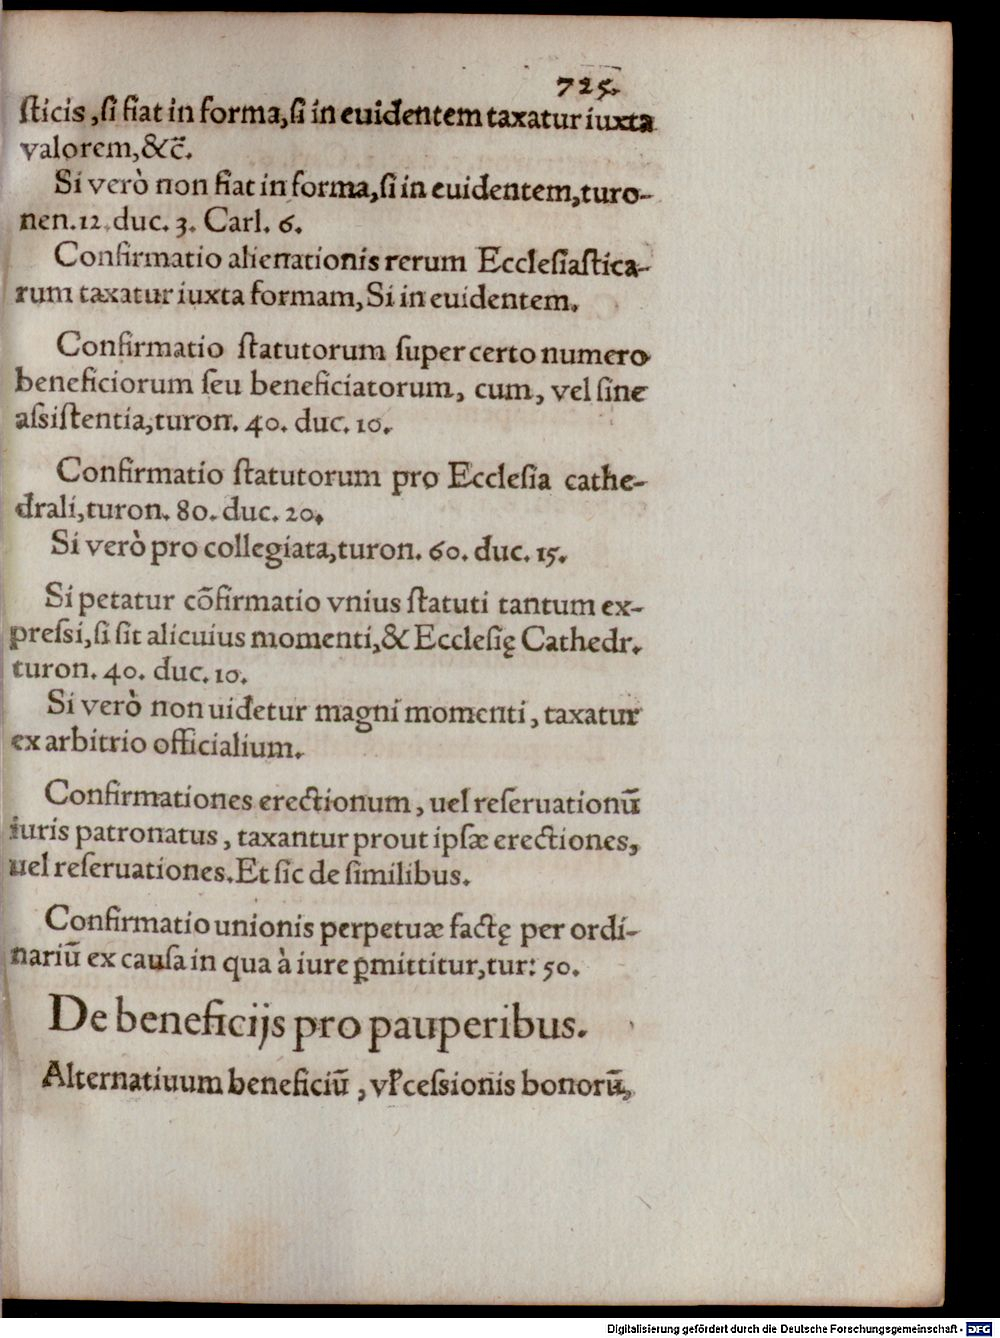 725.
sticis, si fiat in forma, si in euidentem taxatur iuxta
valorem, &c̄.
Si verò non fiat in forma, si in euidentem, turo-
nen. 12. duc. 3. Carl. 6.
Confirmatio alienationis rerum Ecclesiastica-
rum taxatur iuxta formam, Si in euidentem.
Confirmatio statutorum super certo numero
beneficiorum seu beneficiatorum, cum, vel sine
assistentia, turon. 40. duc. 10.
Confirmatio statutorum pro Ecclesia cathe-
drali, turon. 80. duc. 20.
Si verò pro collegiata, turon. 60. duc. 15.
Si petatur cõfirmatio vnius statuti tantum ex-
pressi, si sit alicuius momenti, & Ecclesię Cathedr.
turon. 40. duc. 10.
Si verò non uidetur magni momenti, taxatur
ex arbitrio officialium.
Confirmationes erectionum, uel reseruationū
iuris patronatus, taxantur prout ipsæ erectiones,
uel reseruationes. Et sic de similibus.
Confirmatio unionis perpetuæ factę per ordi-
nariū ex causa in qua à iure ꝑmittitur, tur: 50.
De beneficijs pro pauperibus.
Alternatiuum beneficiū, vl' cessionis bonorū,
Digitalisierung gefördert durch die Deutsche Forschungsgemeinschaft - DFG